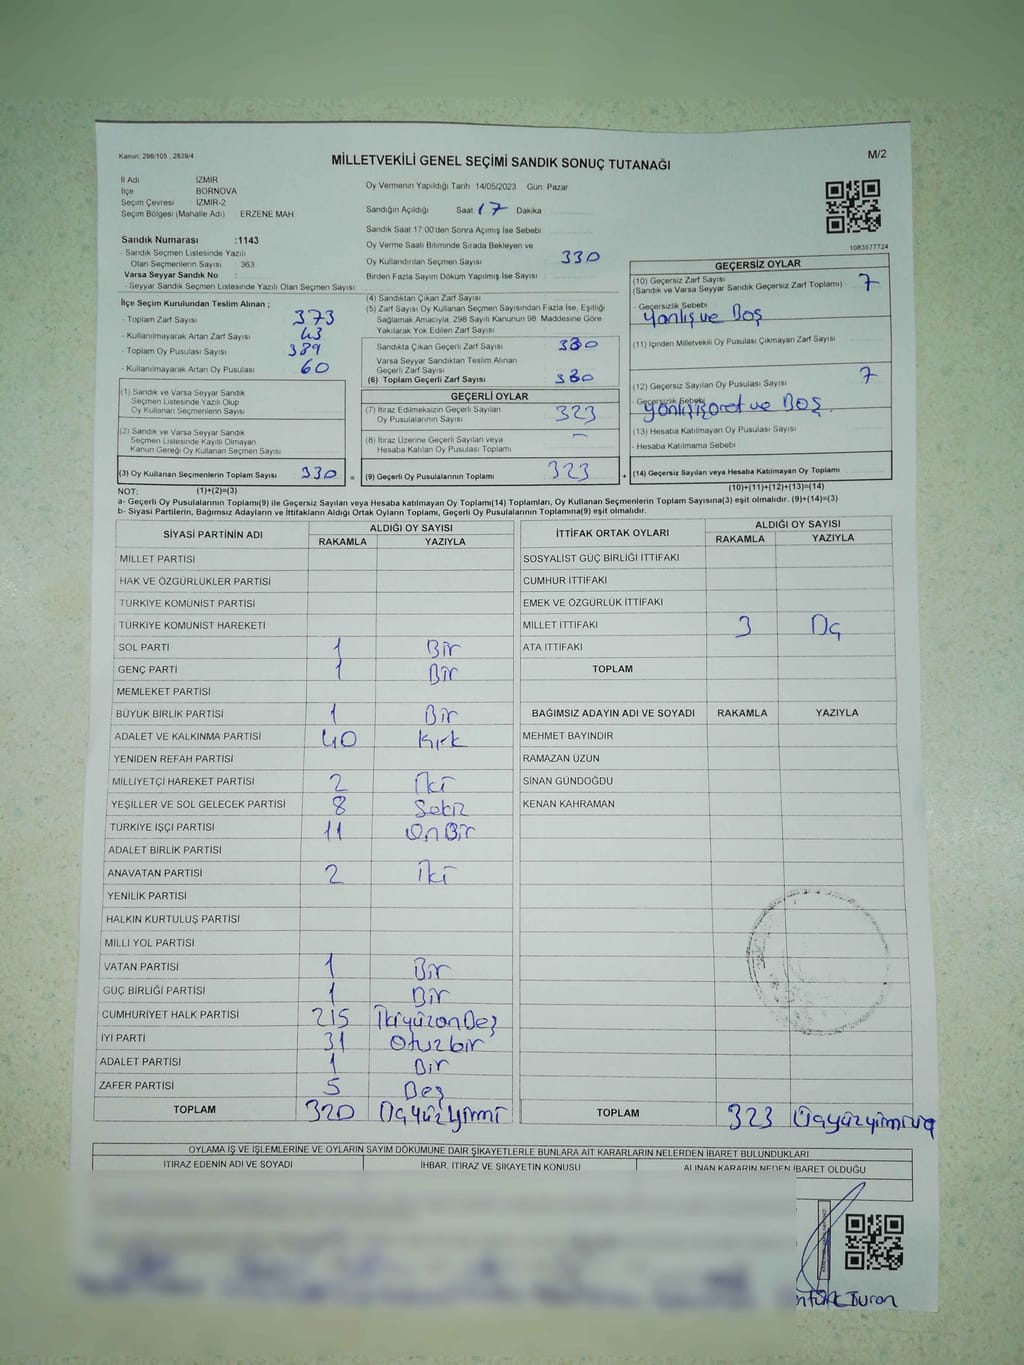 Kanun: 298/105 , 2839/4
MİLLETVEKİLİ GENEL SEÇİMİ SANDIK SONUÇ TUTANAĞI
M/2
İl Adı İZMİR
İlçe BORNOVA
Seçim Çevresi İZMİR-2
Seçim Bölgesi (Mahalle Adı) ERZENE MAH.
Sandık Numarası :1143
- Sandık Seçmen Listesinde Yazılı
Olan Seçmenlerin Sayısı 363
Varsa Seyyar Sandık No :
- Seyyar Sandık Seçmen Listesinde Yazılı Olan Seçmen Sayısı:
Oy Vermenin Yapıldığı Tarih 14/05/2023 Gün: Pazar
Sandığın Açıldığı Saat 17 Dakika
Sandık Saat 17.00'den Sonra Açılmış İse Sebebi
Oy Verme Saati Bitiminde Sırada Bekleyen ve
Oy Kullandırılan Seçmen Sayısı 330
Birden Fazla Sayım Döküm Yapılmış İse Sayısı
1083577724
İlçe Seçim Kurulundan Teslim Alınan ;
- Toplam Zarf Sayısı 373
- Kullanılmayarak Artan Zarf Sayısı 43
- Toplam Oy Pusulası Sayısı 389
- Kullanılmayarak Artan Oy Pusulası 60
(1) Sandık ve Varsa Seyyar Sandık
Seçmen Listesinde Yazılı Olup
Oy Kullanan Seçmenlerin Sayısı
(2) Sandık ve Varsa Seyyar Sandık
Seçmen Listesinde Kayıtlı Olmayan
Kanun Gereği Oy Kullanan Seçmen Sayısı
(3) Oy Kullanan Seçmenlerin Toplam Sayısı 330 =
(4) Sandıktan Çıkan Zarf Sayısı
(5) Zarf Sayısı Oy Kullanan Seçmen Sayısından Fazla İse, Eşitliği
Sağlamak Amacıyla, 298 Sayılı Kanunun 98. Maddesine Göre
Yakılarak Yok Edilen Zarf Sayısı
Sandıkta Çıkan Geçerli Zarf Sayısı 330
Varsa Seyyar Sandıktan Teslim Alınan
Geçerli Zarf Sayısı
(6) Toplam Geçerli Zarf Sayısı 330
GEÇERLİ OYLAR
(7) İtiraz Edilmeksizin Geçerli Sayılan
Oy Pusulalarının Sayısı 323
(8) İtiraz Üzerine Geçerli Sayılan veya
Hesaba Katılan Oy Pusulası Toplamı -
(9) Geçerli Oy Pusulalarının Toplamı 323 +
GEÇERSİZ OYLAR
(10) Geçersiz Zarf Sayısı
(Sandık ve Varsa Seyyar Sandık Geçersiz Zarf Toplamı) 7
- Geçersizlik Sebebi
Yanlış ve Boş
(11) İçinden Milletvekili Oy Pusulası Çıkmayan Zarf Sayısı
(12) Geçersiz Sayılan Oy Pusulası Sayısı 7
- Geçersizlik Sebebi
Yanlış işaret ve Boş.
(13) Hesaba Katılmayan Oy Pusulası Sayısı
- Hesaba Katılmama Sebebi
(14) Geçersiz Sayılan veya Hesaba Katılmayan Oy Toplamı
NOT: (1)+(2)=(3)
(10)+(11)+(12)+(13)=(14)
a- Geçerli Oy Pusulalarının Toplamı(9) ile Geçersiz Sayılan veya Hesaba katılmayan Oy Toplamı(14) Toplamları, Oy Kullanan Seçmenlerin Toplam Sayısına(3) eşit olmalıdır. (9)+(14)=(3)
b- Siyasi Partilerin, Bağımsız Adayların ve İttifakların Aldığı Ortak Oyların Toplamı, Geçerli Oy Pusulalarının Toplamına(9) eşit olmalıdır.
SİYASİ PARTİNİN ADI ALDIĞI OY SAYISI
RAKAMLA YAZIYLA
MİLLET PARTİSİ
HAK VE ÖZGÜRLÜKLER PARTİSİ
TÜRKİYE KOMÜNİST PARTİSİ
TÜRKİYE KOMÜNİST HAREKETİ
SOL PARTİ 1 Bir
GENÇ PARTİ 1 Bir
MEMLEKET PARTİSİ
BÜYÜK BİRLİK PARTİSİ 1 Bir
ADALET VE KALKINMA PARTİSİ 40 Kırk
YENİDEN REFAH PARTİSİ
MİLLİYETÇİ HAREKET PARTİSİ 2 İki
YEŞİLLER VE SOL GELECEK PARTİSİ 8 Sekiz
TÜRKİYE İŞÇİ PARTİSİ 11 On Bir
ADALET BİRLİK PARTİSİ
ANAVATAN PARTİSİ 2 İki
YENİLİK PARTİSİ
HALKIN KURTULUŞ PARTİSİ
MİLLİ YOL PARTİSİ
VATAN PARTİSİ 1 Bir
GÜÇ BİRLİĞİ PARTİSİ 1 Bir
CUMHURİYET HALK PARTİSİ 215 İkiyüzonBeş
İYİ PARTİ 31 Otuzbir
ADALET PARTİSİ 1 Bir
ZAFER PARTİSİ 5 Beş
TOPLAM 320 Üçyüzyirmi
İTTİFAK ORTAK OYLARI ALDIĞI OY SAYISI
RAKAMLA YAZIYLA
SOSYALİST GÜÇ BİRLİĞİ İTTİFAKI
CUMHUR İTTİFAKI
EMEK VE ÖZGÜRLÜK İTTİFAKI
MİLLET İTTİFAKI 3 Üç
ATA İTTİFAKI
TOPLAM
BAĞIMSIZ ADAYIN ADI VE SOYADI RAKAMLA YAZIYLA
MEHMET BAYINDIR
RAMAZAN ÜZÜN
SİNAN GÜNDOĞDU
KENAN KAHRAMAN
TOPLAM 323 Üçyüzyirmiüç
OYLAMA İŞ VE İŞLEMLERİNE VE OYLARIN SAYIM DÖKÜMÜNE DAİR ŞİKAYETLERLE BUNLARA AİT KARARLARIN NELERDEN İBARET BULUNDUKLARI
İTİRAZ EDENİN ADI VE SOYADI İHBAR, İTİRAZ VE ŞİKAYETİN KONUSU ALINAN KARARIN NEDEN İBARET OLDUĞU
Turan